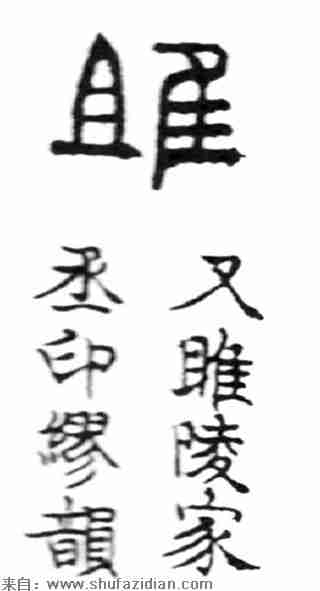 雎
又雎陵家
丞印繆韻
来自：www.shufazidian.com